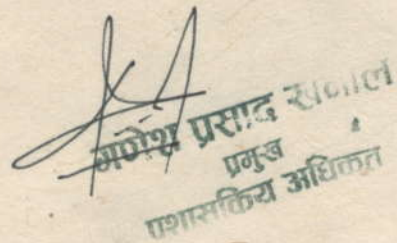 गणेश प्रसाद खनाल
प्रमुख
प्रशासकिय अधिकृत